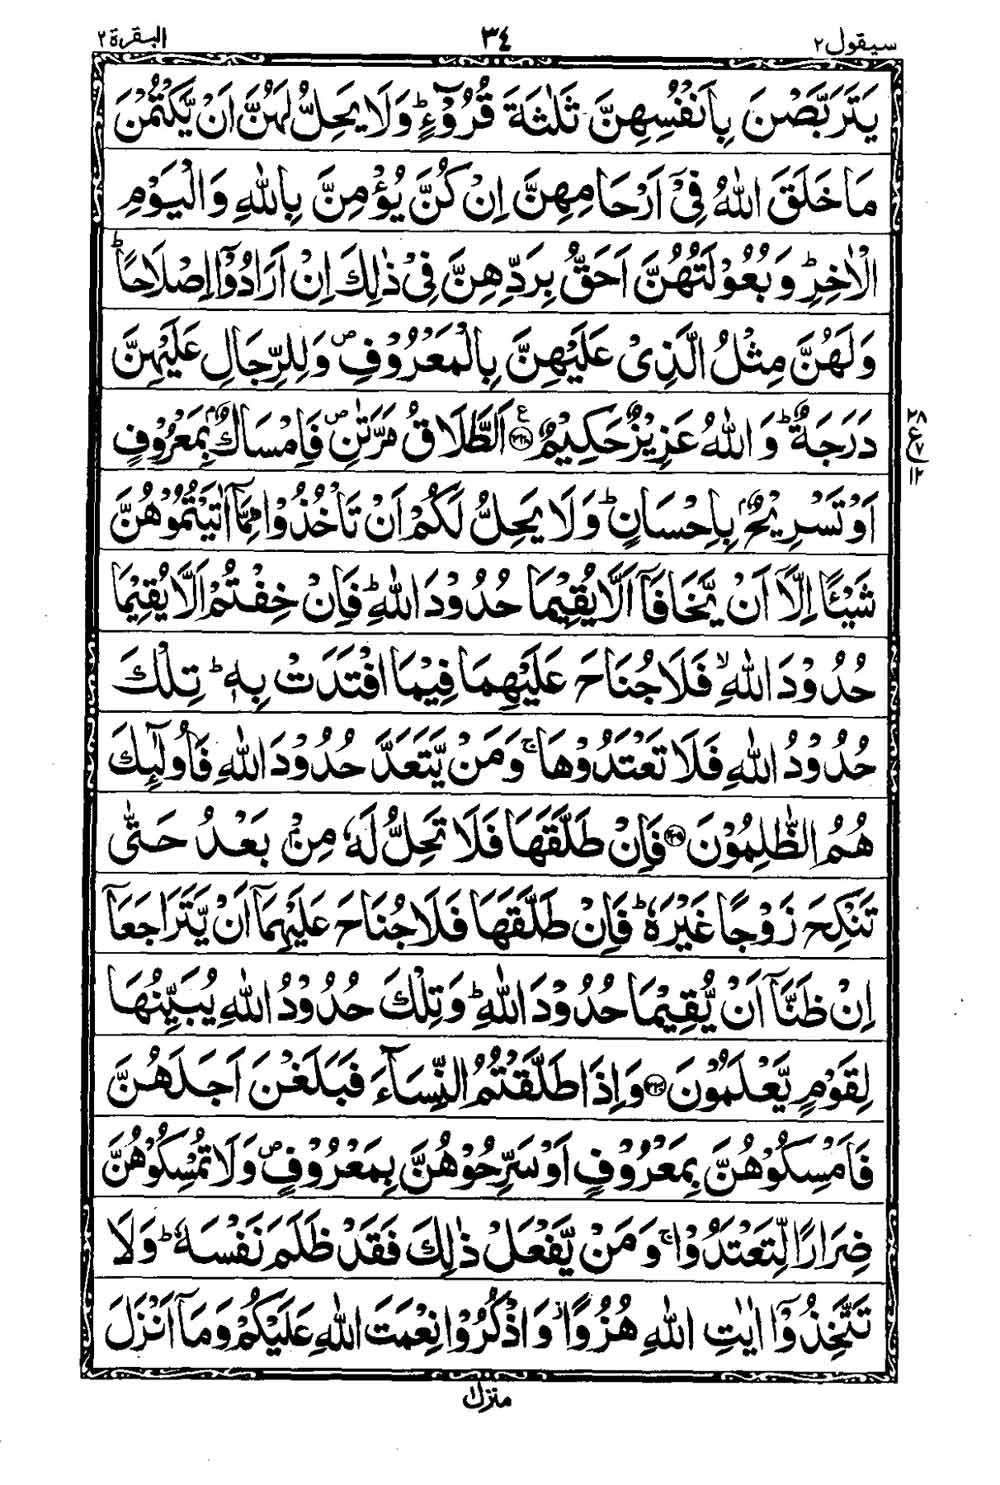 سيقول ٢ ٣٤ البقرة ٢
يَتَرَبَّصْنَ بِاَنْفُسِهِنَّ ثَلٰثَةَ قُرُوْٓءٍ ؕ وَلَا يَحِلُّ لَهُنَّ اَنْ يَّكْتُمْنَ
مَا خَلَقَ اللّٰهُ فِىْٓ اَرْحَامِهِنَّ اِنْ كُنَّ يُؤْمِنَّ بِاللّٰهِ وَالْيَوْمِ
الْاٰخِرِ ؕ وَبُعُوْلَتُهُنَّ اَحَقُّ بِرَدِّهِنَّ فِىْ ذٰلِكَ اِنْ اَرَادُوْٓا اِصْلَاحًا ؕ
وَلَهُنَّ مِثْلُ الَّذِىْ عَلَيْهِنَّ بِالْمَعْرُوْفِ ۪ وَلِلرِّجَالِ عَلَيْهِنَّ
دَرَجَةٌ ؕ وَاللّٰهُ عَزِيْزٌ حَكِيْمٌ ﴿٢٢٨﴾ ع اَلطَّلَاقُ مَرَّتٰنِ ۪ فَاِمْسَاكٌۢ بِمَعْرُوْفٍ
٢٨ ع ٧ ١٢
اَوْ تَسْرِيْحٌۢ بِاِحْسَانٍ ؕ وَلَا يَحِلُّ لَكُمْ اَنْ تَاْخُذُوْا مِمَّآ اٰتَيْتُمُوْهُنَّ
شَيْـًٔا اِلَّآ اَنْ يَّخَافَآ اَلَّا يُقِيْمَا حُدُوْدَ اللّٰهِ ؕ فَاِنْ خِفْتُمْ اَلَّا يُقِيْمَا
حُدُوْدَ اللّٰهِ ۙ فَلَا جُنَاحَ عَلَيْهِمَا فِيْمَا افْتَدَتْ بِهٖ ؕ تِلْكَ
حُدُوْدُ اللّٰهِ فَلَا تَعْتَدُوْهَا ۚ وَمَنْ يَّتَعَدَّ حُدُوْدَ اللّٰهِ فَاُولٰٓئِكَ
هُمُ الظّٰلِمُوْنَ ﴿٢٢٩﴾ فَاِنْ طَلَّقَهَا فَلَا تَحِلُّ لَهٗ مِنْۢ بَعْدُ حَتّٰى
تَنْكِحَ زَوْجًا غَيْرَهٗ ؕ فَاِنْ طَلَّقَهَا فَلَا جُنَاحَ عَلَيْهِمَآ اَنْ يَّتَرَاجَعَآ
اِنْ ظَنَّآ اَنْ يُّقِيْمَا حُدُوْدَ اللّٰهِ ؕ وَتِلْكَ حُدُوْدُ اللّٰهِ يُبَيِّنُهَا
لِقَوْمٍ يَّعْلَمُوْنَ ﴿٢٣٠﴾ وَاِذَا طَلَّقْتُمُ النِّسَآءَ فَبَلَغْنَ اَجَلَهُنَّ
فَاَمْسِكُوْهُنَّ بِمَعْرُوْفٍ اَوْ سَرِّحُوْهُنَّ بِمَعْرُوْفٍ ۪ وَلَا تُمْسِكُوْهُنَّ
ضِرَارًا لِّتَعْتَدُوْا ۚ وَمَنْ يَّفْعَلْ ذٰلِكَ فَقَدْ ظَلَمَ نَفْسَهٗ ؕ وَلَا
تَتَّخِذُوْٓا اٰيٰتِ اللّٰهِ هُزُوًا ۫ وَاذْكُرُوْا نِعْمَتَ اللّٰهِ عَلَيْكُمْ وَمَآ اَنْزَلَ
منزل ١